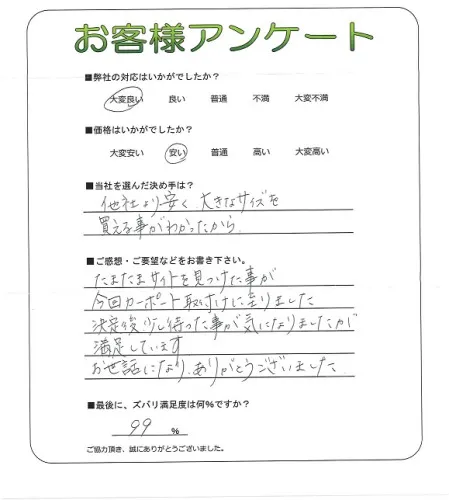 お客様アンケート
■弊社の対応はいかがでしたか?
大変良い 良い 普通 不満 大変不満
■価格はいかがでしたか?
大変安い 安い 普通 高い 大変高い
■当社を選んだ決め手は?
他社より安く 大きなサイズを
買える事がわかったから
■ご感想・ご要望などをお書き下さい。
たまたまサイトを見つけた事が
今回カーポート取付けに至りました
決定後少し待った事が気になりましたが
満足しています
お世話になり、ありがとうございました
■最後に、ズバリ満足度は何%ですか?
99 %
ご協力頂き、誠にありがとうございました。